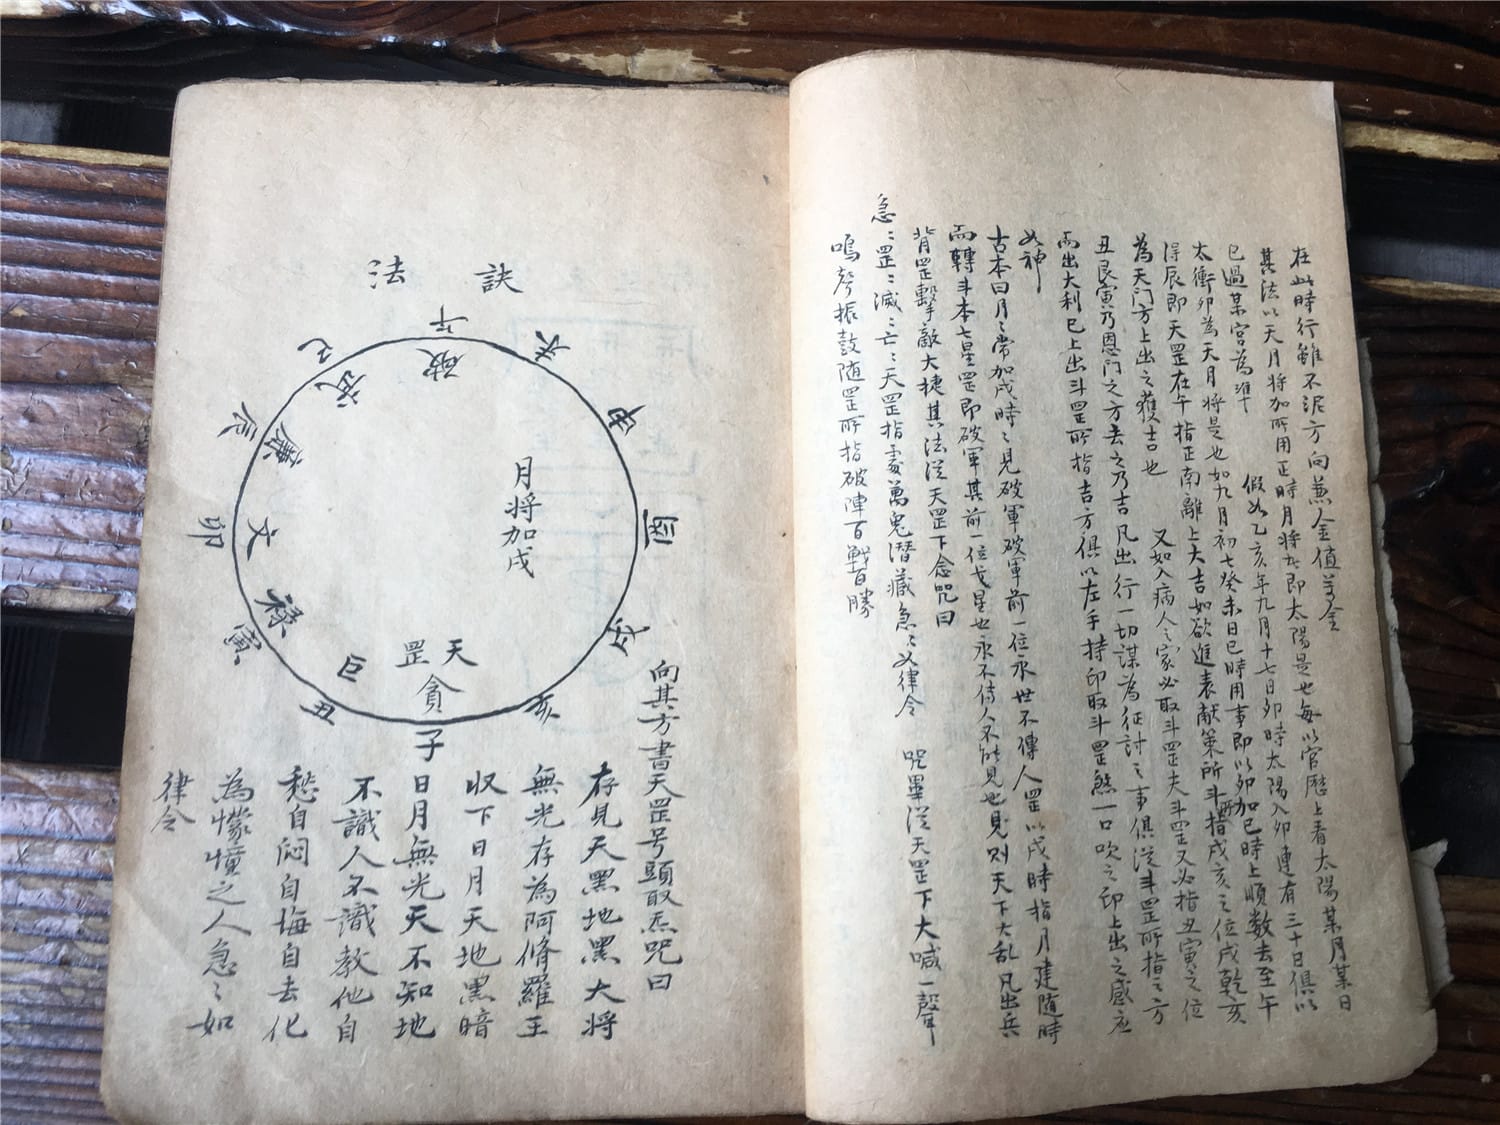 在此時行雖不泥方向兼金值萬金
其法以天月將加所用正時月將者即太陽是也每以官歷上看太陽某月某日
已過某宮為準 假如乙亥年九月十七日卯時太陽入卯連有三十日俱以
太衝卯為天月將是也如九月初七癸未日巳時用事即以卯加巳時上順數去至午
得辰即天罡在午指正南離上大吉如欲進表献策所斗指戌亥之位戌乾亥
為天門方上出之獲吉也 又如入病人之家必取斗罡夫斗罡又必指丑寅之位
丑艮寅乃恩門之方去之乃吉凡出行一切謀為征討之事俱從斗罡所指之方
而出大利已上出斗罡所指吉方俱以左手持印取斗罡煞一口吹之印上出之感应
如神
古本曰月月常加戌時時見破軍破軍前一位永世不傳人罡以戌時指月建随時
而轉斗本七星罡即破軍其前一位戈星也永不侍人不能見也見則天下大乱凡出兵
背罡擊敵大捷其法從天罡下念咒曰
急〻罡〻滅〻亡〻天罡指處萬鬼潛藏急〻如律令 咒畢從天罡下大喊一聲
鳴聲振鼓随罡所指破陣百戰百勝
訣法
午
未
申
酉
戌
亥
子
丑
寅
卯
辰
巳
破
武
廉
文
祿
巨
貪
天罡
月將加戌
向其方書天罡号頭取炁咒曰
存見天黑地黑大將
無光存為阿修羅王
收下日月天地黑暗
日月無光天不知地
不識人不識教他自
愁自悶自悔自去化
為懞憧之人急〻如
律令